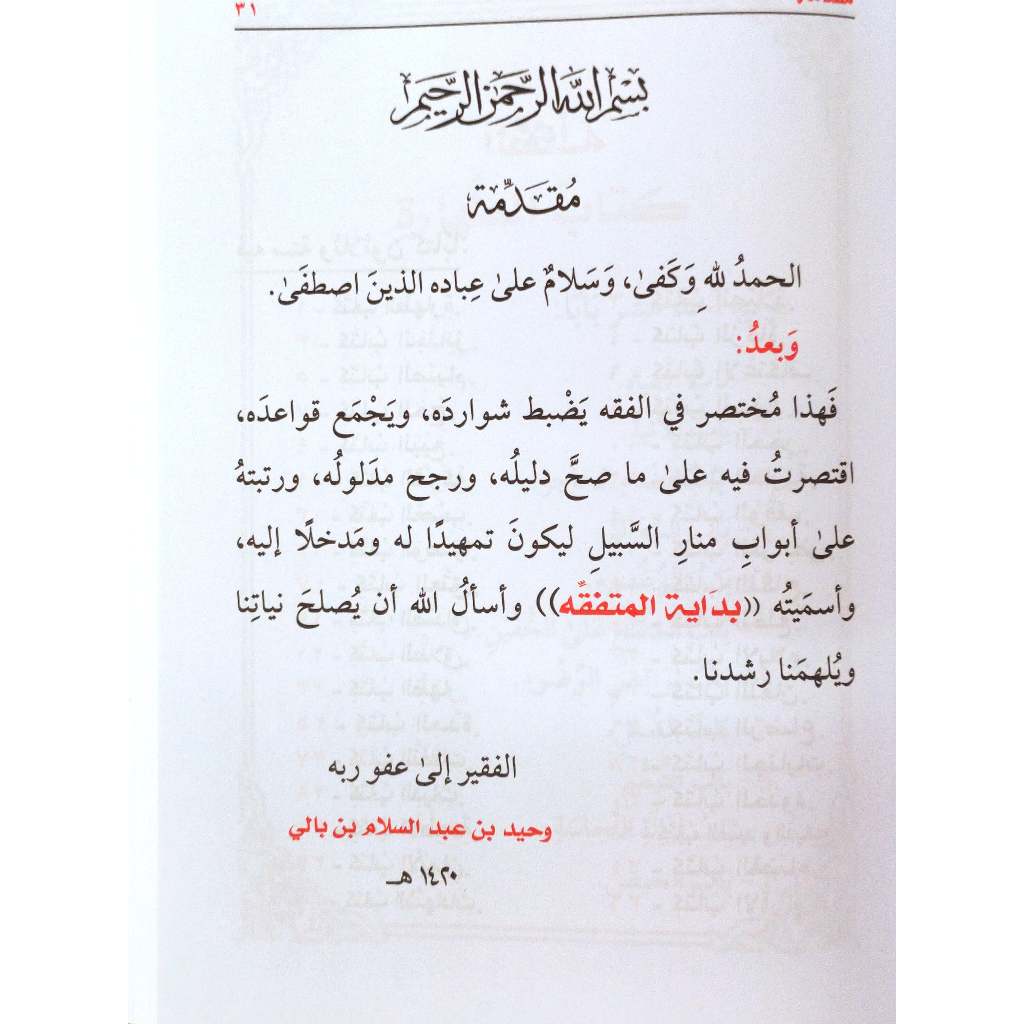 ٣١
بسم الله الرحمن الرحيم
مُقَدِّمة
الحمدُ للهِ وَكَفىٰ، وَسَلامٌ علىٰ عِباده الذينَ اصطفَىٰ.
وَبعدُ:
فَهذا مُختصر في الفقه يَضْبط شواردَه، ويَجْمَع قواعدَه،
اقتصرتُ فيه علىٰ ما صحَّ دليلُه، ورجح مدَلولُه، ورتبتهُ
علىٰ أبوابِ منارِ السَّبيلِ ليكونَ تمهيدًا له ومَدخلًا إليه،
وأسمَيتُه ((بدَاية المتفقِّه)) وأسألُ الله أن يُصلحَ نياتِنا
ويُلهمَنا رشدنا.
الفقير إلىٰ عفو ربه
وحيد بن عبد السلام بن بالي
١٤٢٠ هـ